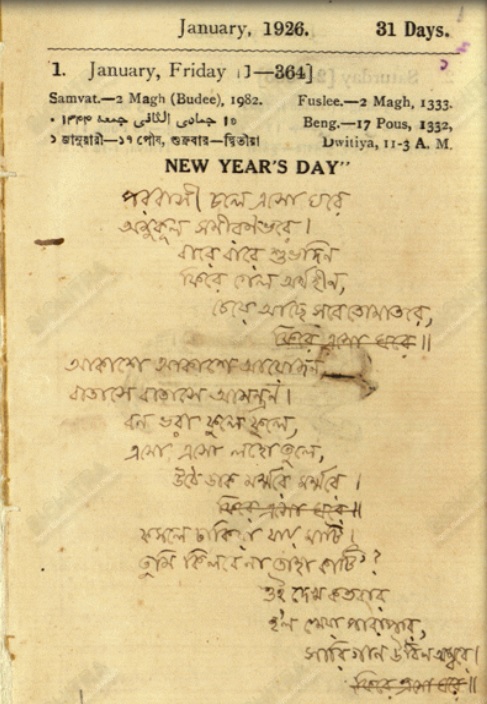 January, 1926. 31 Days.
1. January, Friday [1—364]
Samvat.—2 Magh (Budee), 1982. Fuslee.—2 Magh, 1333.
١٥ جمادى الثانى جمعه ١٣٤٤ Beng.—17 Pous, 1332,
১ জানুয়ারী—১৭ পৌষ, শুক্রবার—দ্বিতীয়া Dwitiya, 11-3 A. M.
NEW YEAR'S DAY"
পরবাসী চলে এসো ঘরে
অনুকূল সমীরণভরে।
বারে বারে শুভদিন
ফিরে গেল অর্থহীন,
চেয়ে আছে সবে তোমাতরে,
ফিরে এসো ঘরে॥
আকাশে আকাশে আয়োজন,
বাতাসে বাতাসে আমন্ত্রন।
বন ভরা ফুলে ফুলে,
এসো এসো লহো তুলে,
উঠে ডাক মর্ম্মরে মর্ম্মরে।
ফিরে এসো ঘরে॥
ফসলে ঢাকিয়া যায় মাটি।
তুমি কি লবে না তাহা কাটি?
ওই দেখ কতবার
হল খেয়া পারাপার,
সারিগান উঠিল অম্বরে।
ফিরে এসো ঘরে॥